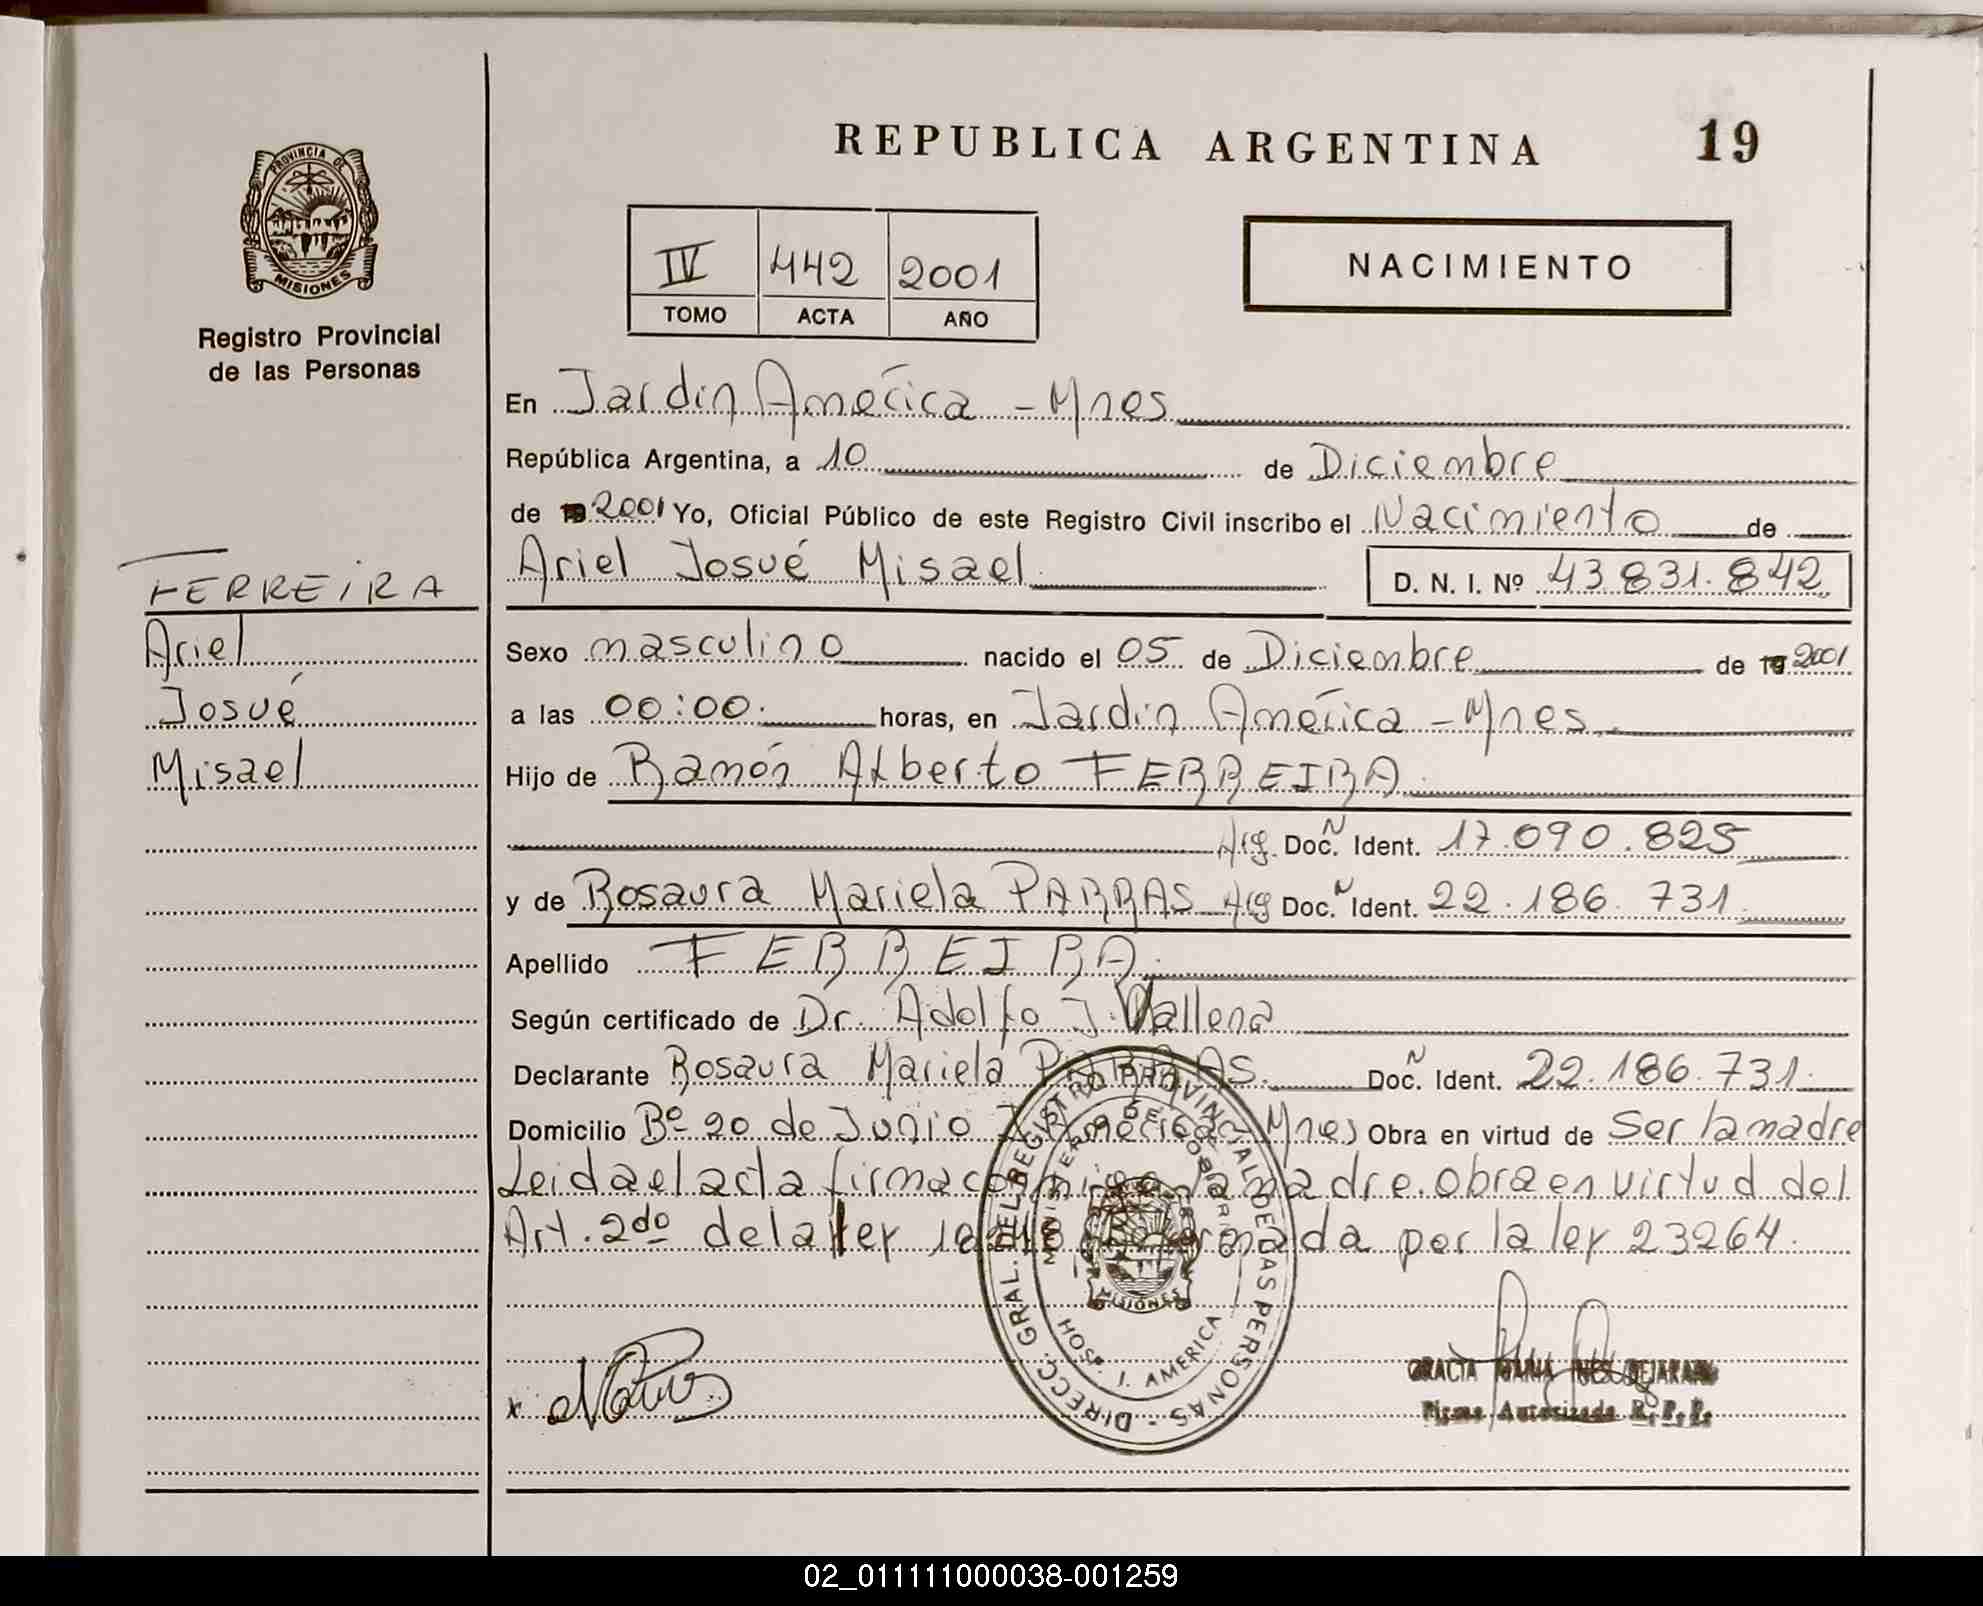 REPUBLICA ARGENTINA 19
PROVINCIA DE
MISIONES
Registro Provincial
de las Personas
IV 442 2001
TOMO ACTA AÑO
NACIMIENTO
En Jardin América - Mnes
República Argentina, a 10 de Diciembre
de 19 2001 Yo, Oficial Público de este Registro Civil inscribo el Nacimiento de
Ariel Josué Misael D. N. I. Nº 43.831.842
FERREIRA
Ariel
Josué
Misael
Sexo masculino nacido el 05 de Diciembre de 19 2001
a las 00:00 horas, en Jardin América - Mnes
Hijo de Ramón Alberto FERREIRA
Arg. Doc. N Ident. 17.090.825
y de Rosaura Mariela PARRAS Arg Doc. N Ident. 22.186.731
Apellido FERREIRA
Según certificado de Dr. Adolfo J. Vallena
Declarante Rosaura Mariela PARRAS Doc. N Ident. 22.186.731
Domicilio Bº 20 de Junio J. América Mnes Obra en virtud de Ser la madre
Leida el acta firma conmigo la madre. obra en virtud del
Art. 2do de la ley por la ley 23264.
DIRECC. GRAL. DEL REGISTRO PROVINCIAL DE LAS PERSONAS
MINISTERIO DE GOBIERNO
MISIONES
HOSP. J. AMERICA
GRACIA MARIA INES
Firma Autorizada R. P. P.
02_011111000038-001259